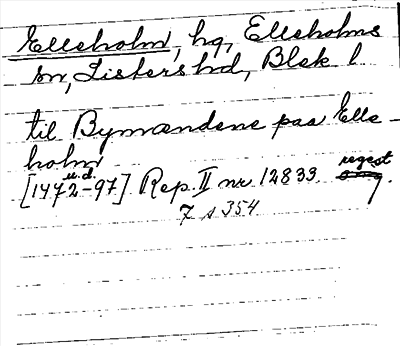 Elleholm, hg, Elleholms
sn, Listers hrd, Blek l
til Bymændene paa Elle-
holm
u.d.
[1472-97] Rep. II nr 12833. regest
7 s 354